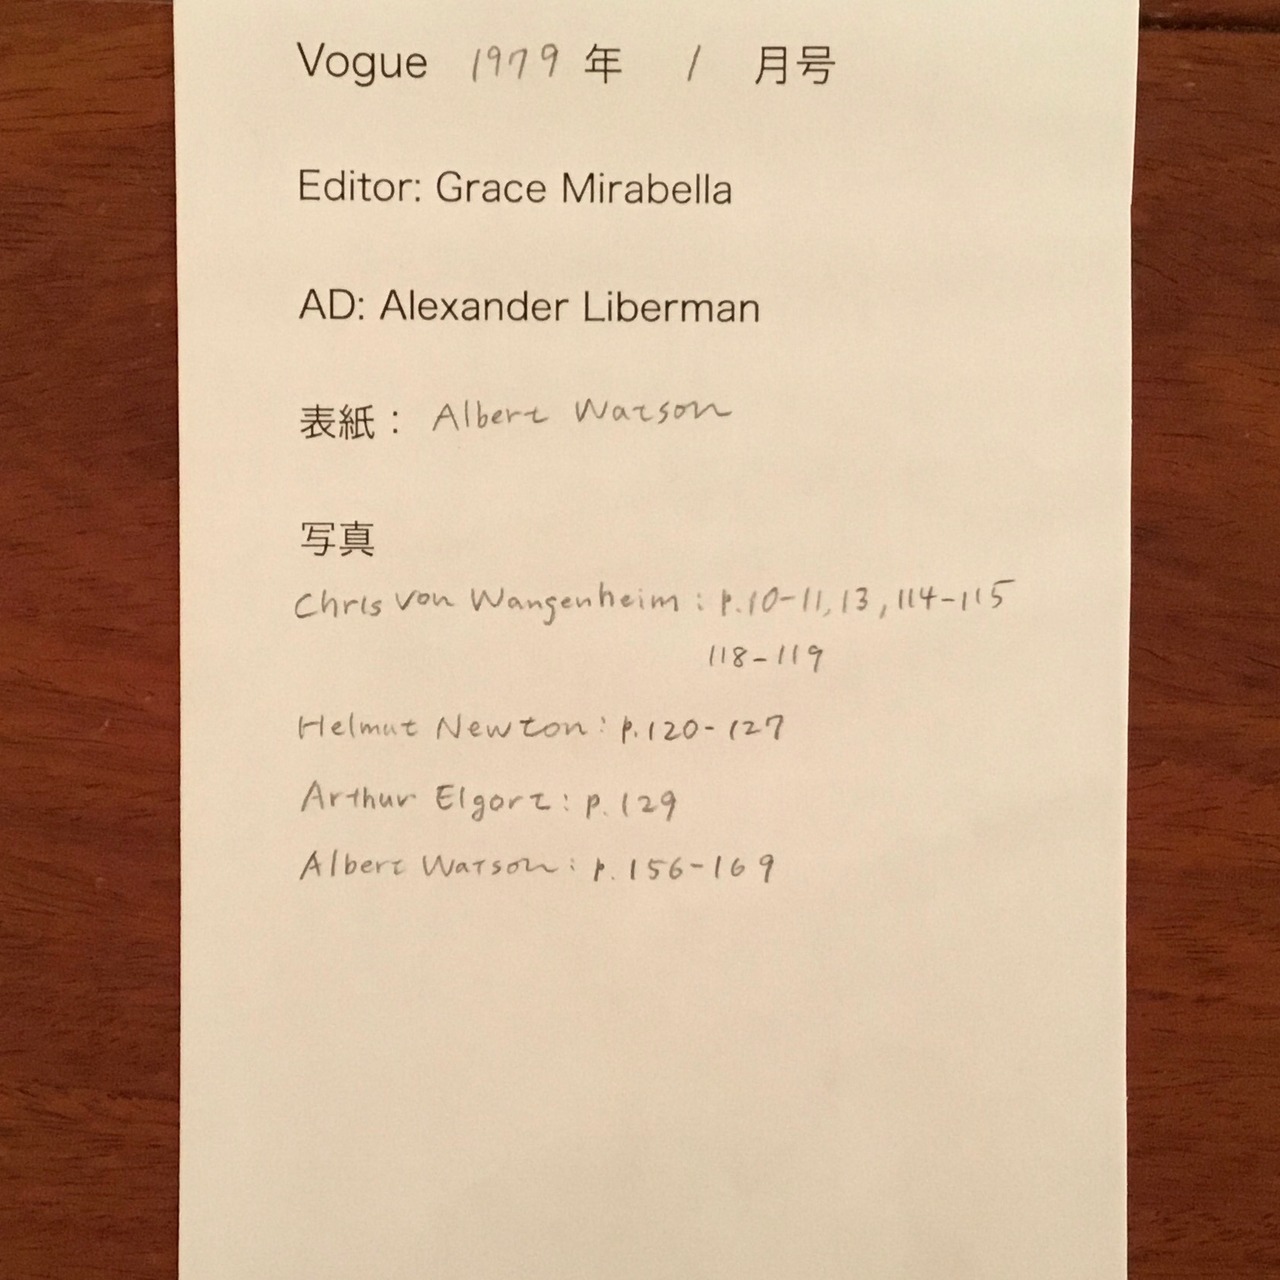 Vogue 1979 年 1 月号
Editor: Grace Mirabella
AD: Alexander Liberman
表紙： Albert Watson
写真
Chris von Wangenheim : p.10-11, 13, 114-115
118-119
Helmut Newton : p.120-127
Arthur Elgort : p.129
Albert Watson : p.156-169